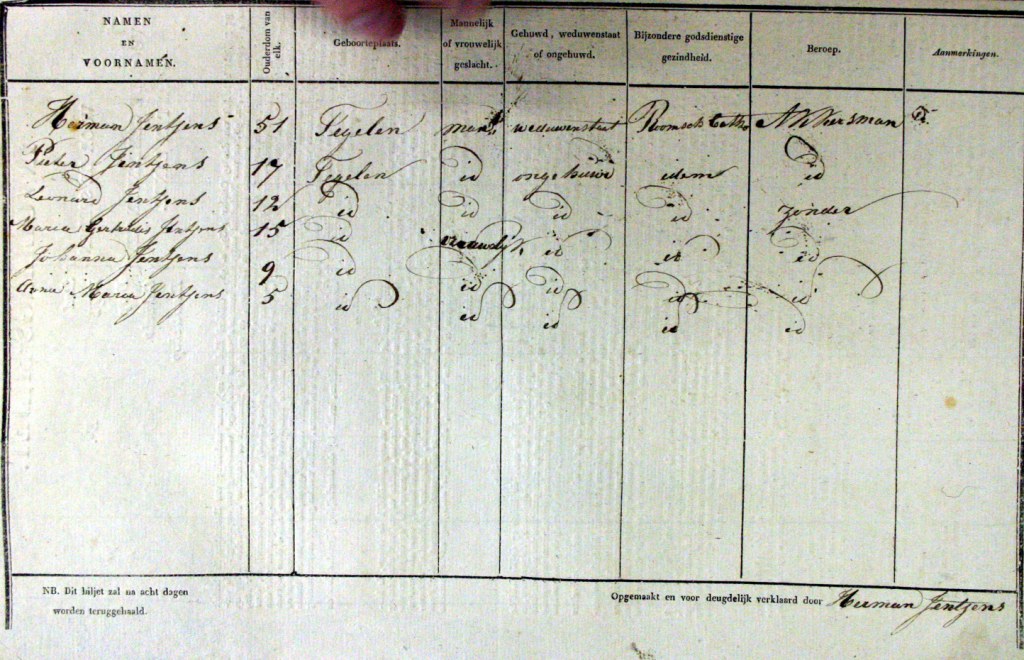 NAMEN EN VOORNAMEN. Ouderdom van elk. Geboorteplaats. Mannelijk of vrouwelijk geslacht. Gehuwd, weduwenstaat of ongehuwd. Bijzondere godsdienstige gezindheid. Beroep. Aanmerkingen.
Herman Jentjens 51 Tegelen man weduwenstaat Romsch Catho Akkersman
Pieter Jentjens 17 Tegelen id ongehuwd idem id
Leonard Jentjens 12 id id id id zonder
Maria Gertrudis Jentjens 15 id vrouwelijk id id id
Johanna Jentjens 9 id id id id id
Anna Maria Jentjens 5 id id id id id
NB. Dit biljet zal na acht dagen
worden teruggehaald.
Opgemaakt en voor deugdelijk verklaard door Herman Jentjens